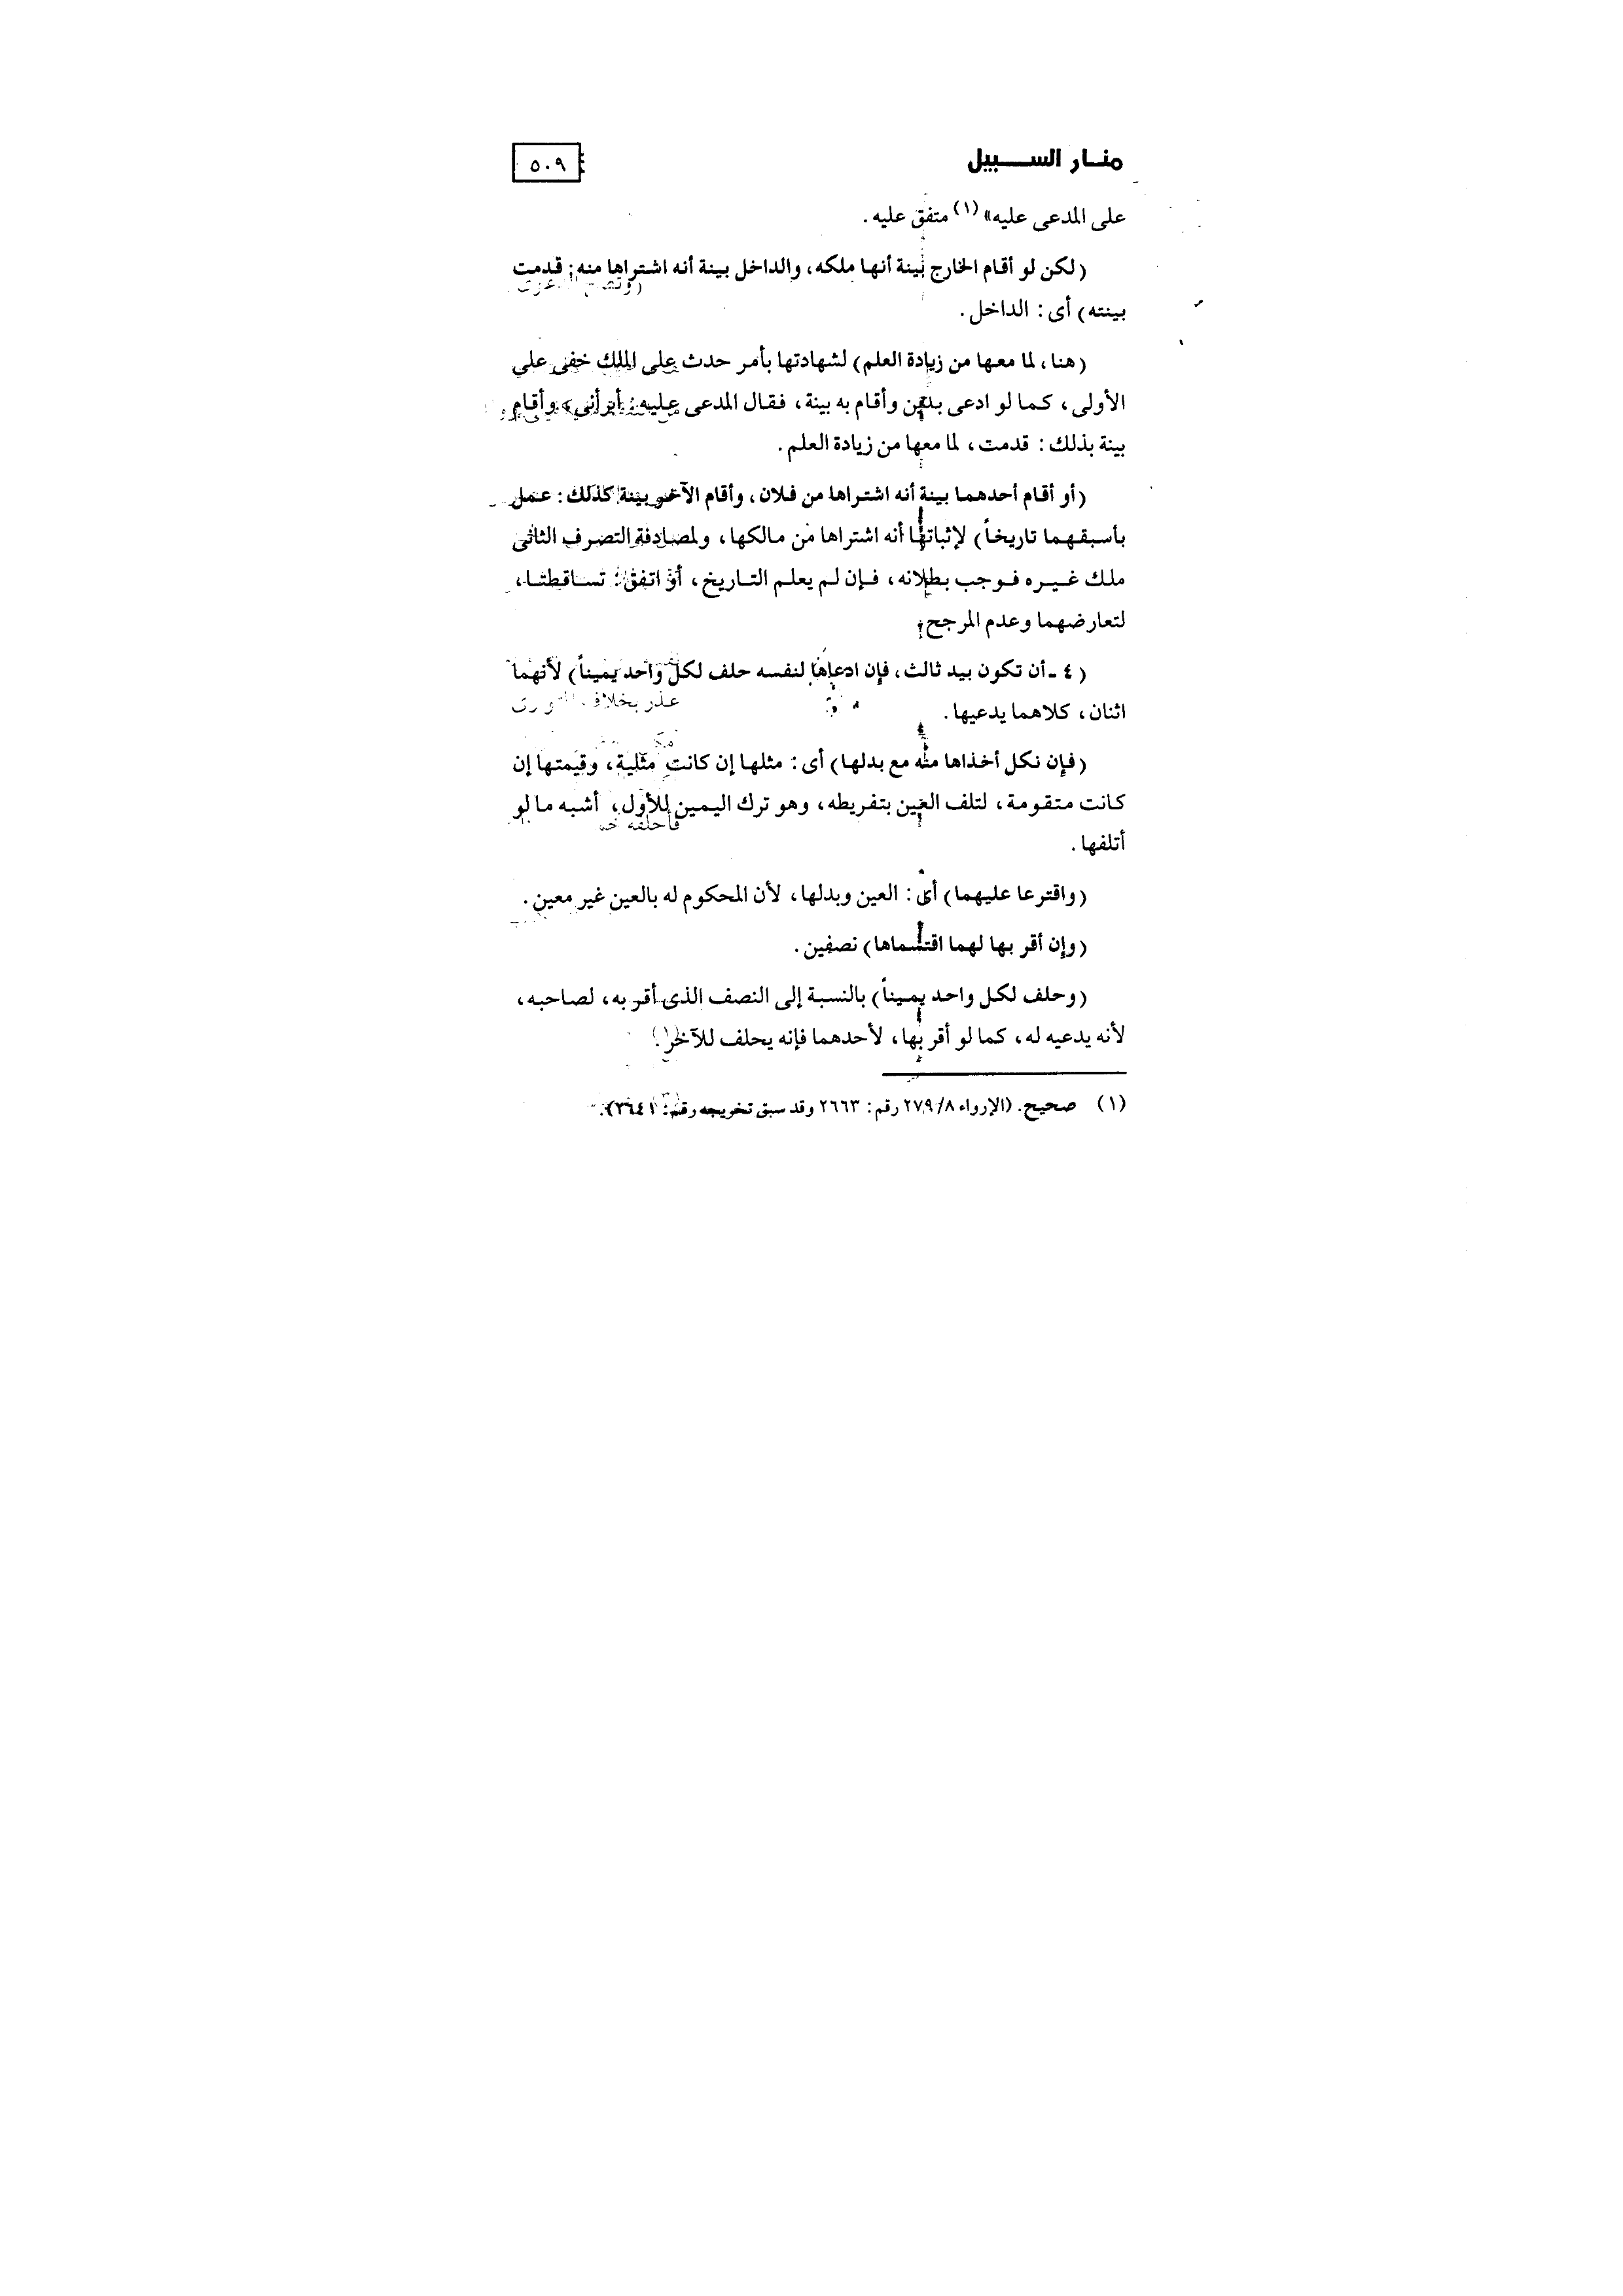 منار السبيل
٥٠٩
على المدعى عليه» (١) متفق عليه.
(لكن لو أقام الخارج بينة أنها ملكه، والداخل بينة أنه اشتراها منه: قدمت
بينته) أى: الداخل.
(هنا، لما معها من زيادة العلم) لشهادتها بأمر حدث على الملك خفى على
الأولى، كما لو ادعى بدين وأقام به بينة، فقال المدعى عليه: أبرأنى، وأقام
بينة بذلك: قدمت، لما معها من زيادة العلم.
(أو أقام أحدهما بينة أنه اشتراها من فلان، وأقام الآخر بينة كذلك: عمل
بأسبقهما تاريخاً) لإثباتها أنه اشتراها من مالكها، ولمصادفة التصرف الثانى
ملك غيره فوجب بطلانه، فإن لم يعلم التاريخ، أو اتفق: تساقطتا،
لتعارضهما وعدم المرجح.
(٤ ـ أن تكون بيد ثالث، فإن ادعاها لنفسه حلف لكل واحد يميناً) لأنهما
اثنان، كلاهما يدعيها.
(فإن نكل أخذاها منه مع بدلها) أى: مثلها إن كانت مثلية، وقيمتها إن
كانت متقومة، لتلف العين بتفريطه، وهو ترك اليمين للأول، أشبه ما لو
أتلفها.
(واقترعا عليهما) أى: العين وبدلها، لأن المحكوم له بالعين غير معين.
(وإن أقر بها لهما اقتسماها) نصفين.
(وحلف لكل واحد يميناً) بالنسبة إلى النصف الذى أقر به، لصاحبه،
لأنه يدعيه له، كما لو أقر بها، لأحدهما فإنه يحلف للآخر.
(١) صحيح. (الإرواء ٢٧٩/٨ رقم: ٢٦٦٣ وقد سبق تخريجه رقم: ٢٦٤١).